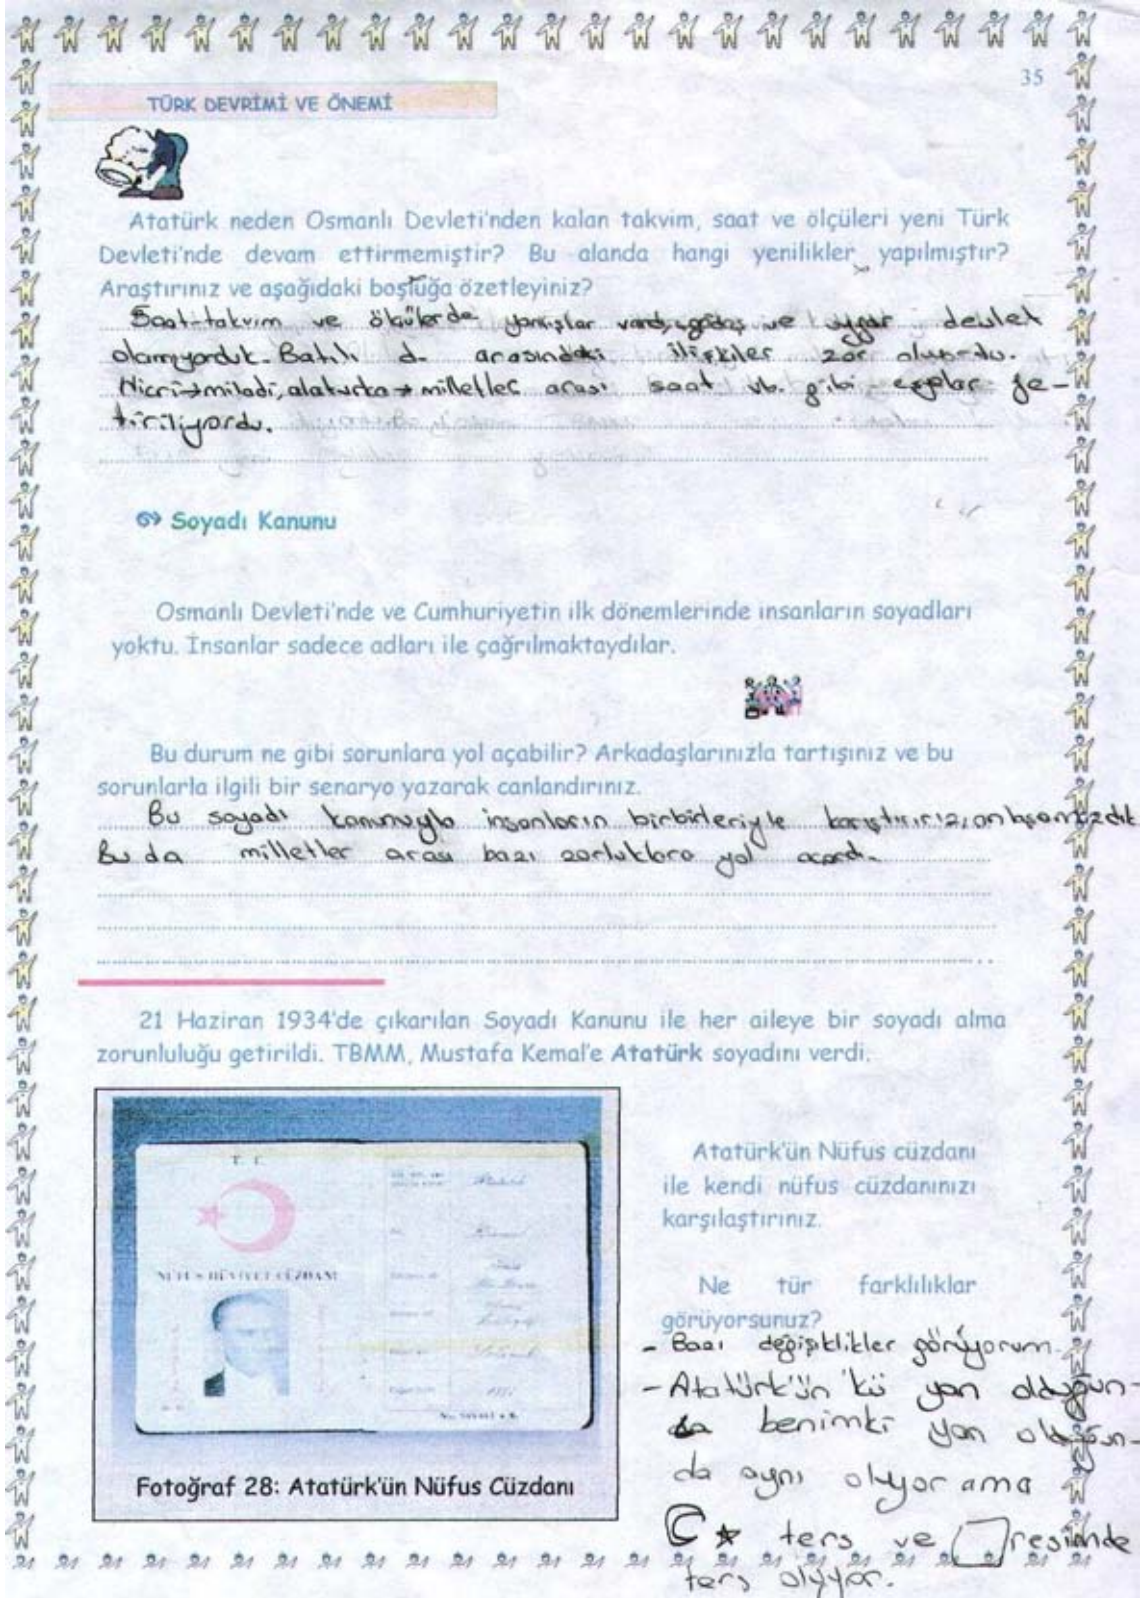 35
TÜRK DEVRİMİ VE ÖNEMİ
Atatürk neden Osmanlı Devleti'nden kalan takvim, saat ve ölçüleri yeni Türk
Devleti'nde devam ettirmemiştir? Bu alanda hangi yenilikler yapılmıştır?
Araştırınız ve aşağıdaki boşluğa özetleyiniz?
Saat-takvim ve ölçülerde yanlışlar vardı, çağdaş ve uygar devlet
olamıyorduk. Batılı d. arasındaki ilişkiler zor oluyordu.
Hicri→miladi, alaturka→milletler arası saat vb. gibi ge-
tiriliyordu.
Soyadı Kanunu
Osmanlı Devleti'nde ve Cumhuriyetin ilk dönemlerinde insanların soyadları
yoktu. İnsanlar sadece adları ile çağrılmaktaydılar.
Bu durum ne gibi sorunlara yol açabilir? Arkadaşlarınızla tartışınız ve bu
sorunlarla ilgili bir senaryo yazarak canlandırınız.
Bu soyadı kanunuyla insanların birbirleriyle karıştırırız,
Bu da milletler arası bazı zorluklara yol açardı.
21 Haziran 1934'de çıkarılan Soyadı Kanunu ile her aileye bir soyadı alma
zorunluluğu getirildi. TBMM, Mustafa Kemal'e Atatürk soyadını verdi.
T. C.
NÜFUS HÜVİYET CÜZDANI
Fotoğraf 28: Atatürk'ün Nüfus Cüzdanı
Atatürk'ün Nüfus cüzdanı
ile kendi nüfus cüzdanınızı
karşılaştırınız.
Ne tür farklılıklar
görüyorsunuz?
- Bazı değişiklikler görüyorum.
- Atatürk'ün'kü yan olduğun-
da benimki yan olduğun-
da aynı oluyor ama
ters ve resimde
ters oluyor.